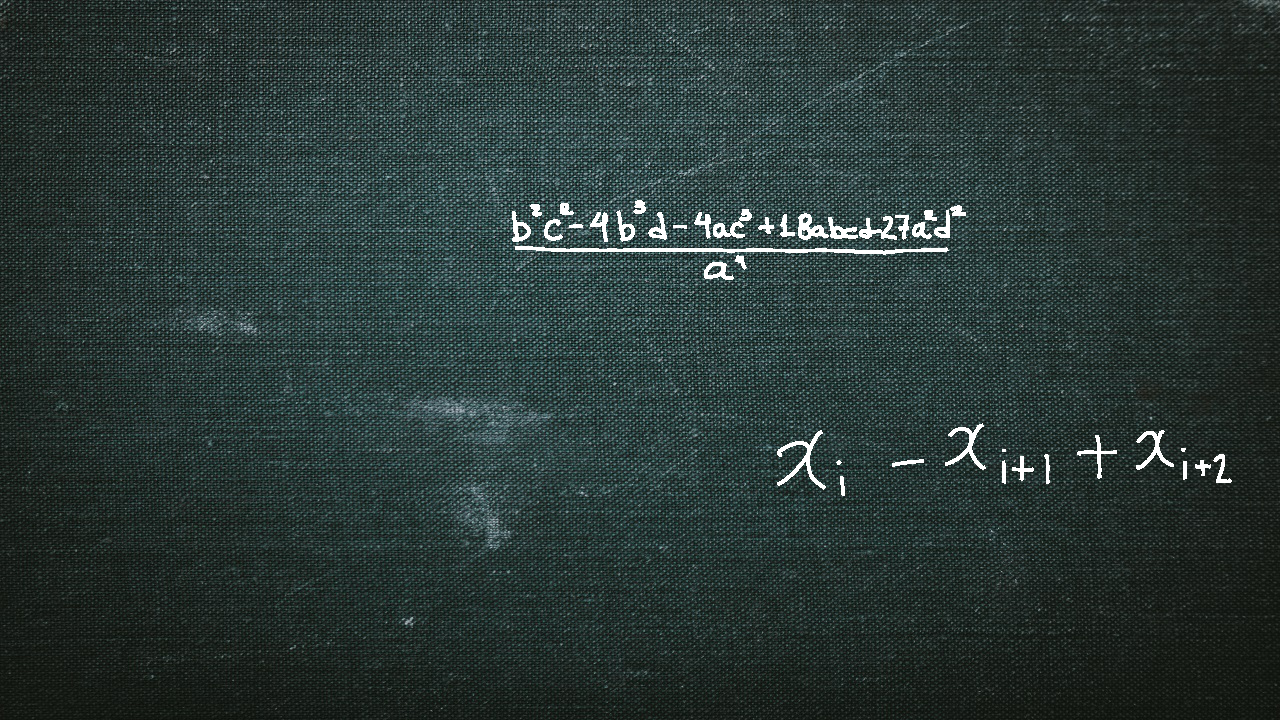 b²c² - 4b³d - 4ac³ + 18abcd - 27a²d² / a⁴
x_i - x_{i+1} + x_{i+2}